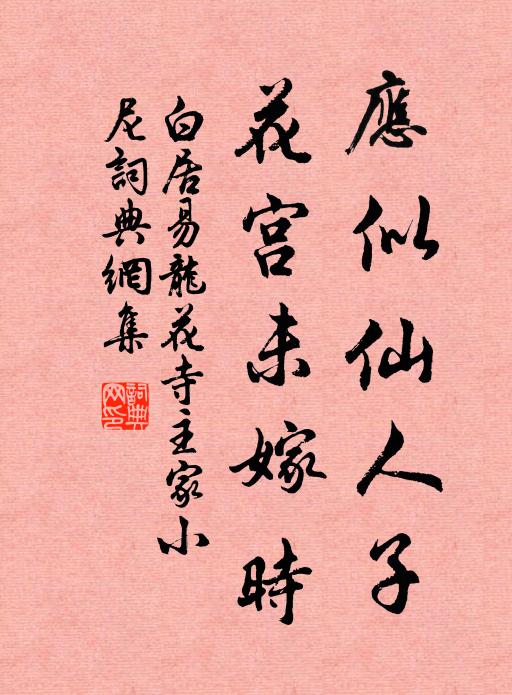 應似仙人子
花宮未嫁時
白居易龍花寺主家小
尼詞典網集
詞典
網印